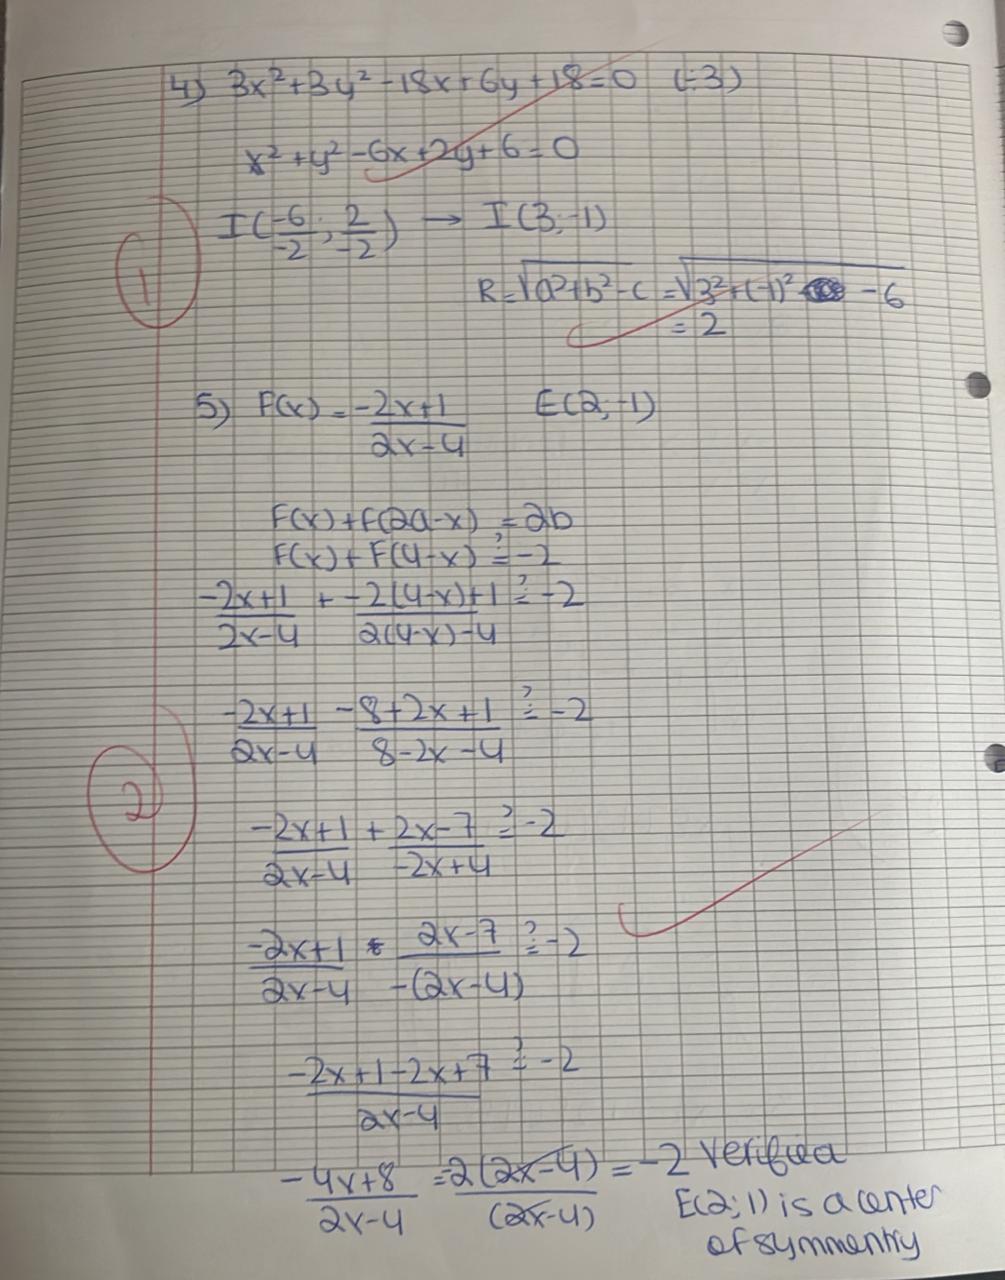 4) 3x²+3y²-18x+6y+18=0 (÷3)
x²+y²-6x+2y+6=0
I(-6/-2; 2/-2) → I(3;-1)
1
R=√(a²+b²-c) =√(3²+(-1)² -6)
= 2
5) F(x) = (-2x+1)/(2x-4) E(2;-1)
F(x)+F(2a-x) = 2b
F(x)+F(4-x) ?= -2
(-2x+1)/(2x-4) + (-2(4-x)+1)/(2(4-x)-4) ?= -2
(-2x+1)/(2x-4) (-8+2x+1)/(8-2x-4) ?= -2
2
(-2x+1)/(2x-4) + (2x-7)/(-2x+4) ?= -2
(-2x+1)/(2x-4) + (2x-7)/(-(2x-4)) ?= -2
(-2x+1-2x+7)/(2x-4) ?= -2
(-4x+8)/(2x-4) = -2(2x-4)/(2x-4) = -2 verified
E(2;1) is a center
of symmentry